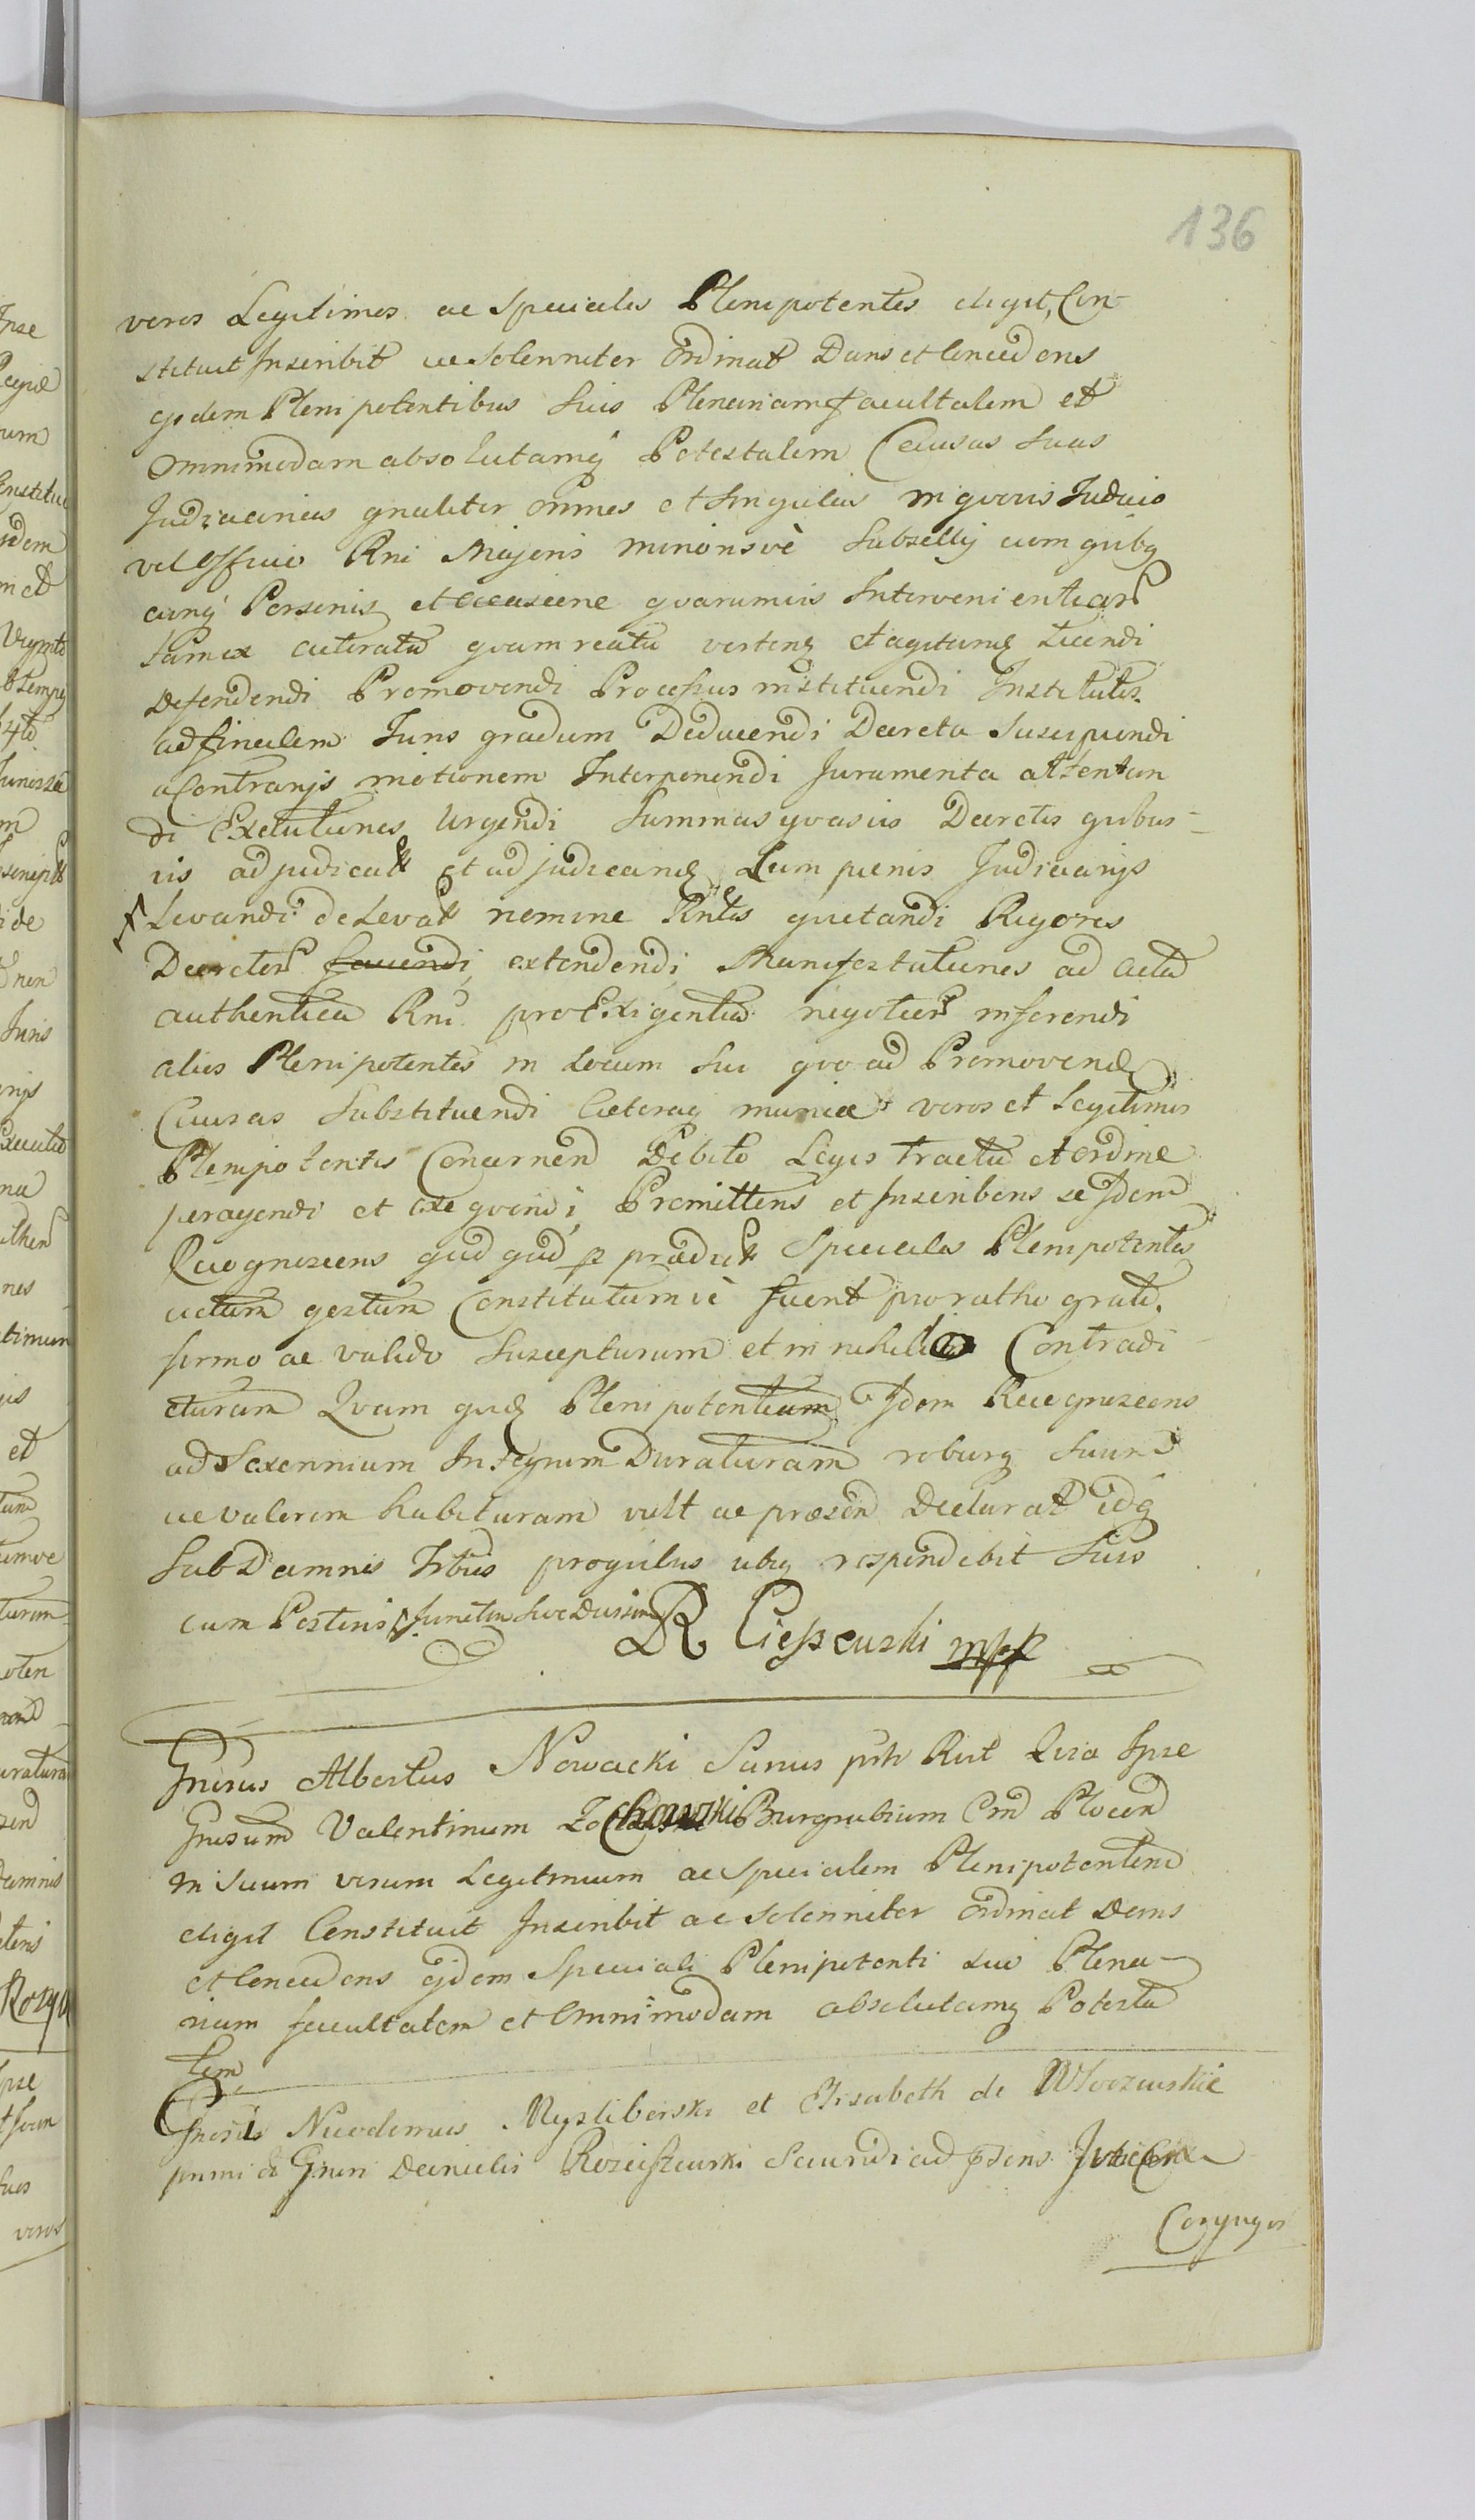 136
veros Legitimos ac Speciales Plenipotentes eligit, Con-
stituit Inscribit ac Solenniter Ordinat Dans et Concedens
ejsdem Plenipotentibus Suis Plenariam facultatem et
Omnimodam absolutamq Potestatem Causas Suas
Judiciarias gnaliter omnes et Singulas in qvovis Judicio
vel Officio Rni Majoris minorisvè Subsellij cum qvibq
cunq Personis et occasione qvarumvis Intervenientiar
tam ex actoratu qvam reatu verten et agitan tuendi
Defendendi Promovendi Processus instituendi Institutos
ad finalem Juris gradum Deducendi Decreta Suscipiendi
a Contrarijs motionem Interponendi Juramenta attentan
di Executiones Urgendi Summas qvasvis Decretis qvibus-
vis adjudicat et adjudicand cum poenis Judiciarijs
Levandi de Levat nomine Rntis qvietandi Rigores
Decretor favendi, extendendi, Manifestationes ad acta
authentica Rni pro Exigentia negotior inferendi
alios Plenipotentes in Locum Sui qvo ad Promovend
Causas Substituendi Caeteraq munia veros et Legitimos
Plenipotentes Concernen Debito Legis tractu et ordine
peragendi et exeqvendi, Promittens et Inscribens se Idem
Recognoscens qvid qvid p praedict Speciales Plenipotentes
actum gestum Constitutumvè fuerit pro ratho grato
firmo ac valido Suscepturum et in nihilo Contradi
cturum Qvam qvid Plenipotentiam Idem Recognoscens
ad Sexennium Integrum Duraturam roburq Suum
ac valorem habituram vult ac praesen Declarat idq
Sub Damnis Trbus proqvibus ubiq respondebit Suis
cum Posteris Junctim Sive Divisim
R Cieszewski mpp
Gnrsus Albertus Nowacki Sanus pnte Rntt Lisa Ipse
Gnrsum Valentinum Zochowski Burgrabium Cnd Plocen
in Suum verum Legitimum ac Specialem Plenipotentem
eligit Constituit Inscribit ac Solenniter Ordinat Dans
et Concedens ejdem Speciali Plenipotenti Suo Plena-
riam facultatem et Omnimodam absolutamq Potesta
tem
Gnrsi Nicodemus Mysliborski et Elisabeth de
primi et Gnrsi Danielis Rosciszewski Secundi ad psens
Conjuges